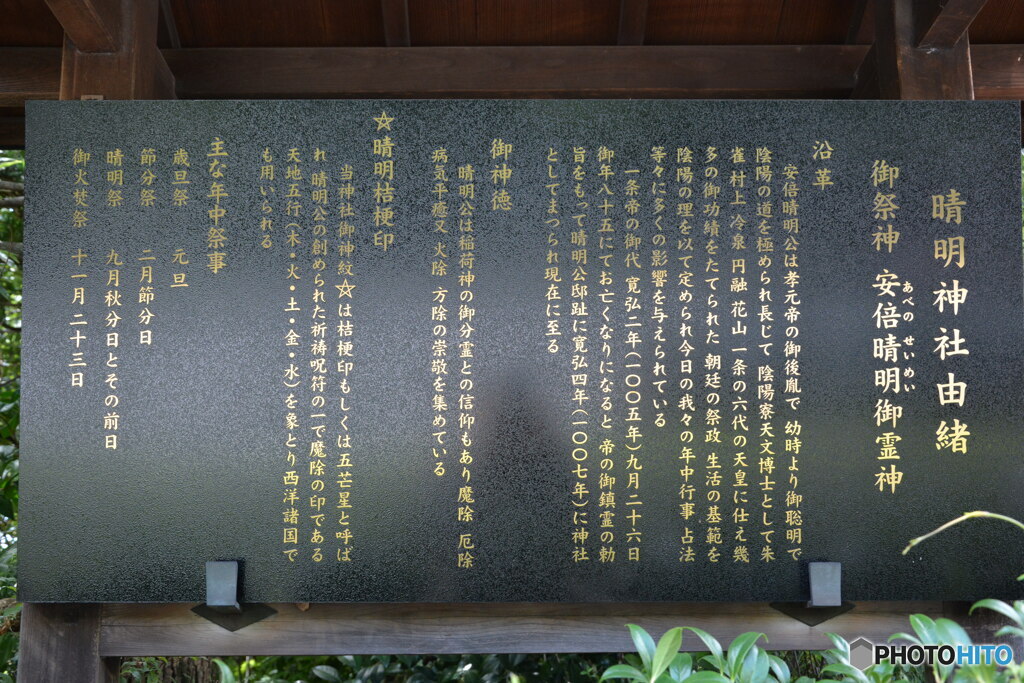 晴明神社由緒
御祭神 安倍晴明御霊神
あべの せいめい
沿革
安倍晴明公は孝元帝の御後胤で 幼時より御聡明で
陰陽の道を極められ長じて 陰陽寮天文博士として朱
雀 村上 冷泉 円融 花山 一条の六代の天皇に仕え幾
多の御功績をたてられた 朝廷の祭政 生活の基範を
陰陽の理を以て定められ今日の我々の年中行事 占法
等々に多くの影響を与えられている
一条帝の御代 寛弘二年(一〇〇五年)九月二十六日
御年八十五にてお亡くなりになると 帝の御鎮霊の勅
旨をもって晴明公邸趾に寛弘四年(一〇〇七年)に神社
としてまつられ現在に至る
御神徳
晴明公は稲荷神の御分霊との信仰もあり魔除 厄除
病気平癒又 火除 方除の崇敬を集めている
☆晴明桔梗印
当神社御神紋☆は桔梗印もしくは五芒星と呼ば
れ 晴明公の創められた祈祷呪符の一で魔除の印である
天地五行(木・火・土・金・水)を象とり西洋諸国で
も用いられる
主な年中祭事
歳旦祭 元旦
節分祭 二月節分日
晴明祭 九月秋分日とその前日
御火焚祭 十一月二十三日
PHOTOHITO